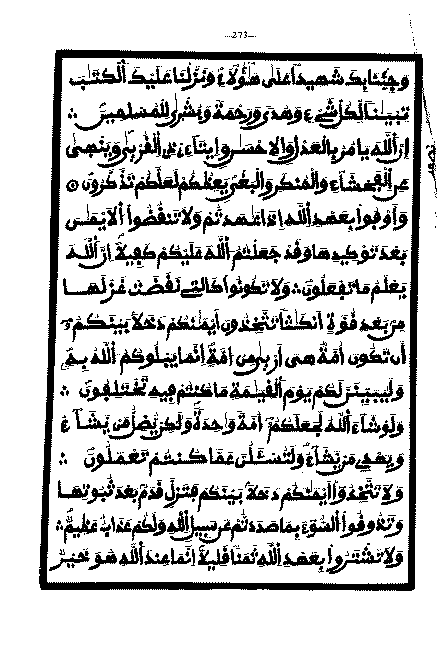 —273—
وجئنا بك شهيدا على هؤلاء ونزلنا عليك الكتب
تبينا لكل شےء وهدى ورحمة وبشرى للمسلمين
ان الله يامر بالعدل والاحسن وإيتاءے ذى القربى وينهى
عن الفحشاء والمنكر والبغى يعظكم لعلكم تذكرون
وأوفوا بعهد الله إذا عهدتم ولا تنقضوا الايمن
بعد توكيدها وقد جعلتم الله عليكم كفيلا ان الله
يعلم ما تفعلون ولا تكونوا كالتے نقضت غزلها
من بعد قوة انكثا تتخذون أيمنكم دخلا بينكم
أن تكون أمة هى أربى من امة إنما يبلوكم الله به
وليبينن لكم يوم القيمة ما كنتم فيه تختلفون
ولو شاء الله لجعلكم أمة وحدة ولكن يضل من يشاء
ويهدى من يشاء ولتسئلن عما كنتم تعملون
ولا تتخذوا أيمنكم دخلا بينكم فتزل قدم بعد ثبوتها
وتذوقوا السوء بما صددتم عن سبيل الله ولكم عذاب عظيم
ولا تشتروا بعهد الله ثمنا قليلا انما عند الله هو خير